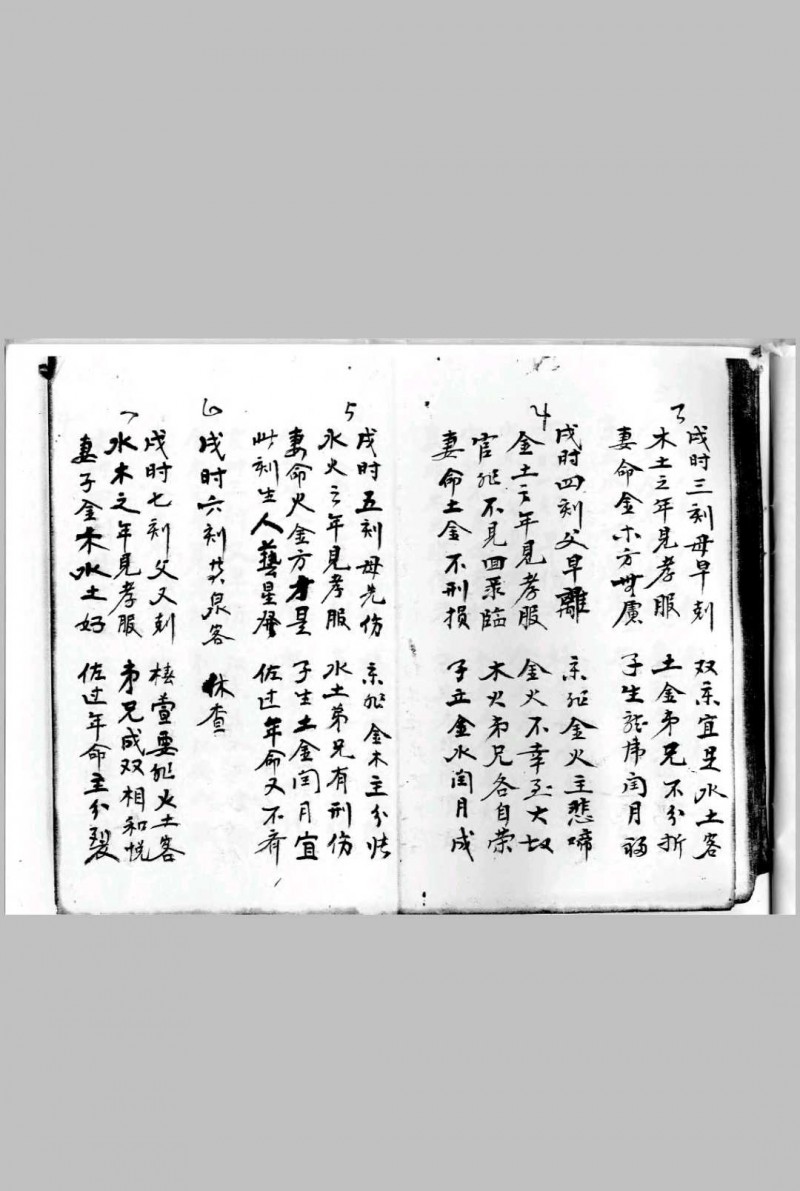 3
戌时三刻母早刻 双亲宜是水土客
木土之年見孝服 土金弟兄不分折
妻命金木方無慮 子生 闰月
4
戌时四刻父早離 亲 金火主悲啼
金土之年見孝服 金火不幸 大
官 不見回 臨 木火弟兄各自荣
妻命土金不刑損 子立金水闰月成
5
戌时五刻母先伤 亲 金木主分
水火之年見孝服 水土弟兄有刑伤
妻命火金方才是 子生土金闰月宜
此刻生人藝星 佐过年命又不齐
6
戌时六刻黄泉客 休查
7
戌时七刻父又刻 椿萱要 火土客
水木之年見孝服 弟兄成双相和悦
妻子金木水土好 佐过年命主分裂